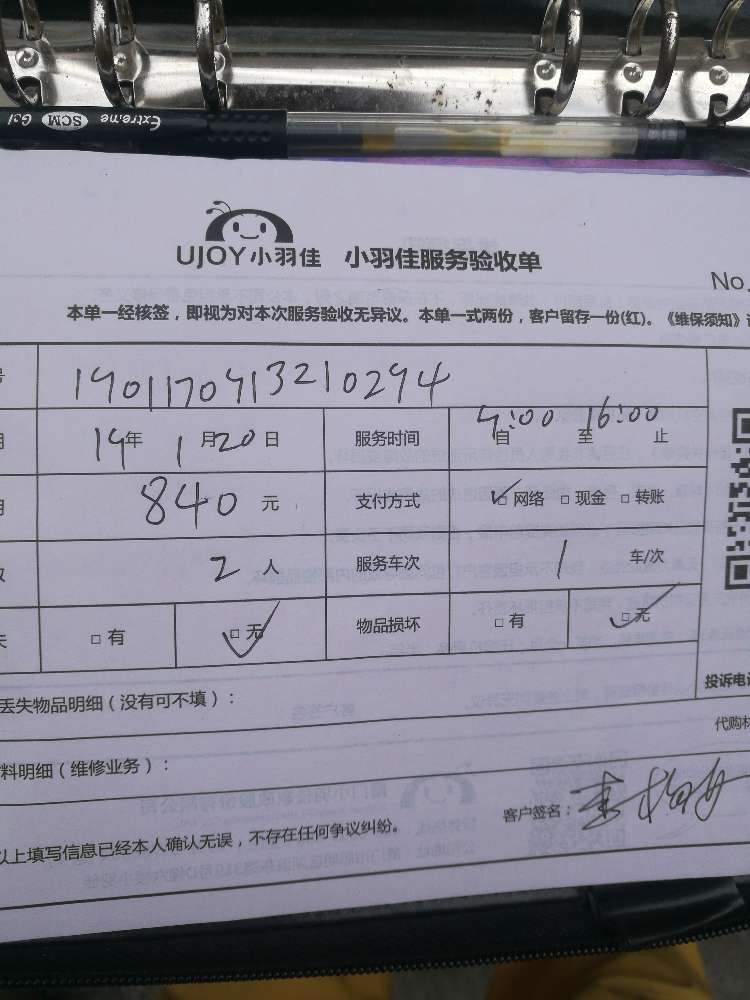 Extreme SCM Gel
UJOY小羽佳 小羽佳服务验收单
No.
本单一经核签，即视为对本次服务验收无异议。本单一式两份，客户留存一份(红)。《维保须知》
号 1901170913210294
期 19年 1月20日 服务时间 9:00 自 16:00 至 止
用 840 元 支付方式 ✓□网络 □现金 □转账
数 2 人 服务车次 1 车/次
失 □有 □无 ✓ 物品损坏 □有 □无 ✓
丢失物品明细（没有可不填）：
投诉电话
料明细（维修业务）：
代购材
以上填写信息已经本人确认无误，不存在任何争议纠纷。
客户签名：